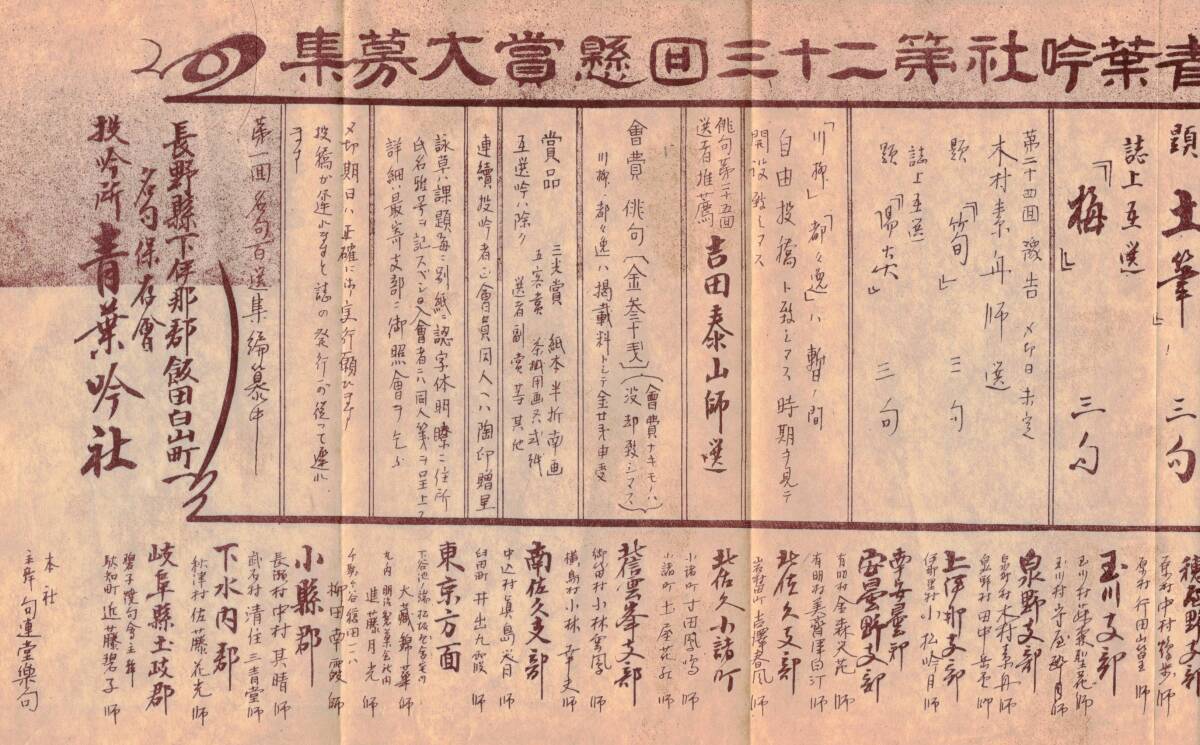 青葉吟社第二十三回懸賞大募集
題 土筆 三句
誌上互選
「梅」 三句
第二十四回豫告 〆切日未定
木村素舟師選
題「筍」 三句
誌上互選
題「陽炎」 三句
「川柳」「都々逸」ハ暫日ノ間
自由投稿ト致シマス時期ヲ見テ
開設致シマス
俳句第二十五回
選者推薦 吉田泰山師選
會費 俳句(金参十銭)(會費ナキモノハ
没却致シマス)
川柳、都々逸ハ掲載料トシテ金廿銭申受
賞品 三光賞 紙本半折南画
五客賞 茶掛用画又ハ式紙
互選吟ハ除ク 選者副賞等其他
連續投吟者ニ會員同人ヘハ陶印贈呈
詠草ハ課題毎ニ別紙ニ認字体明瞭ニ住所
氏名雅号ヲ記スベシ入會者ニハ同人箋ヲ呈上ス
詳細ハ最寄支部ニ御照會ヲ乞ふ
〆切期日ハ正確に御実行願ひます
投稿が遅れますと誌の発行が従って遅れ
ます
第一回名句百選集編纂中
長野縣下伊那郡飯田白山町
名句保存會
投吟所 青葉吟社
原村行田山笛主師
玉川支部
玉川村守屋
泉野支部
泉野村木村素舟師
泉野村田中
上伊那支部
伊那里村小松吟月師
南安曇郡
安曇野支部
有明村金森天苑師
有明村美齊津白汀師
北佐久支部
岩村田町吉澤春風師
北佐久小諸町
小諸町寸田鳳鳴師
小諸町土屋花紅師
北信雲峯支部
御代田村小林雲鳳師
横鳥村小林
南佐久支部
中込村眞島
臼田町井出九霞師
東京方面
大藏錦華師
丸ノ内明治製菓会社内
進藤月光師
柳田南霞師
小縣郡
長瀬村中村其晴師
武石村清住三青堂師
下水内郡
秋津村佐藤花光師
岐阜縣土岐郡
碧子煌句會主幹
駄知町近藤碧子師
本社
主幹 旬蓮堂樂句